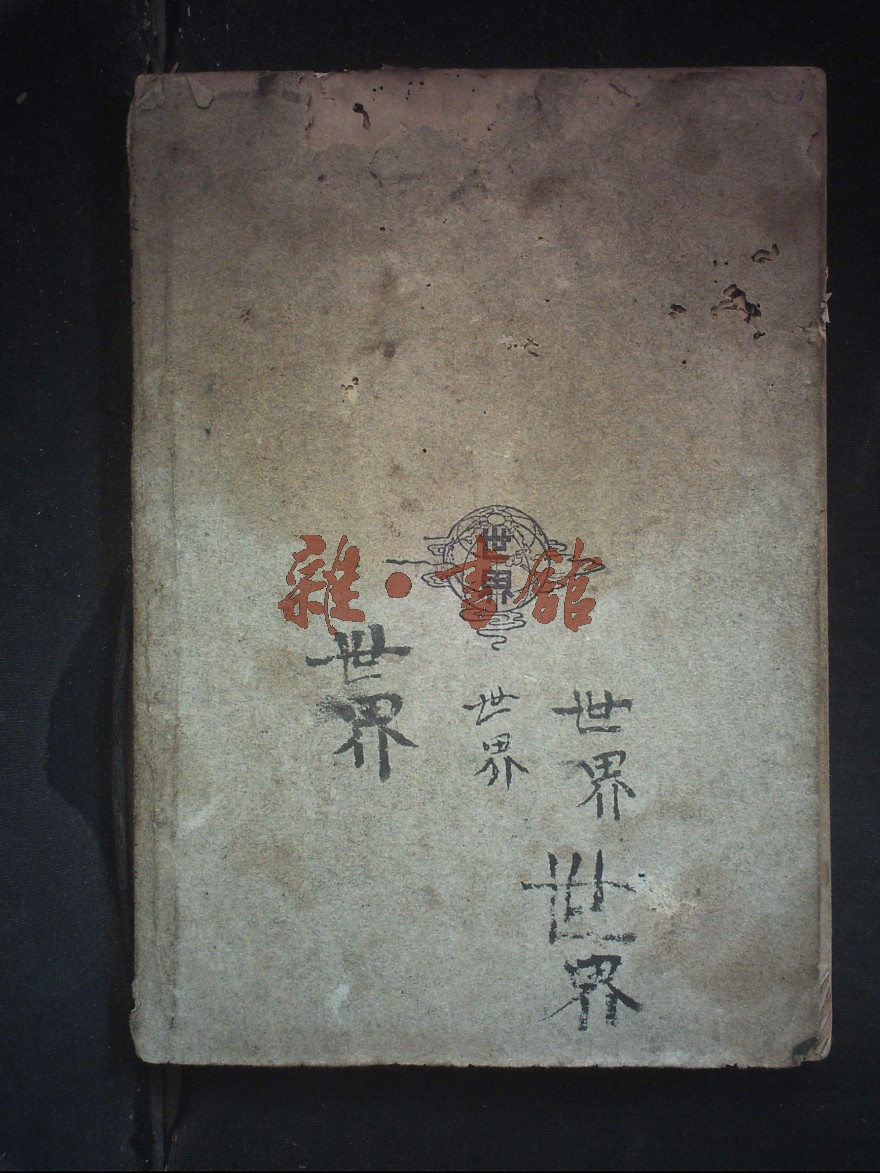 世界
雜·書館
世界
世界
世界
世界